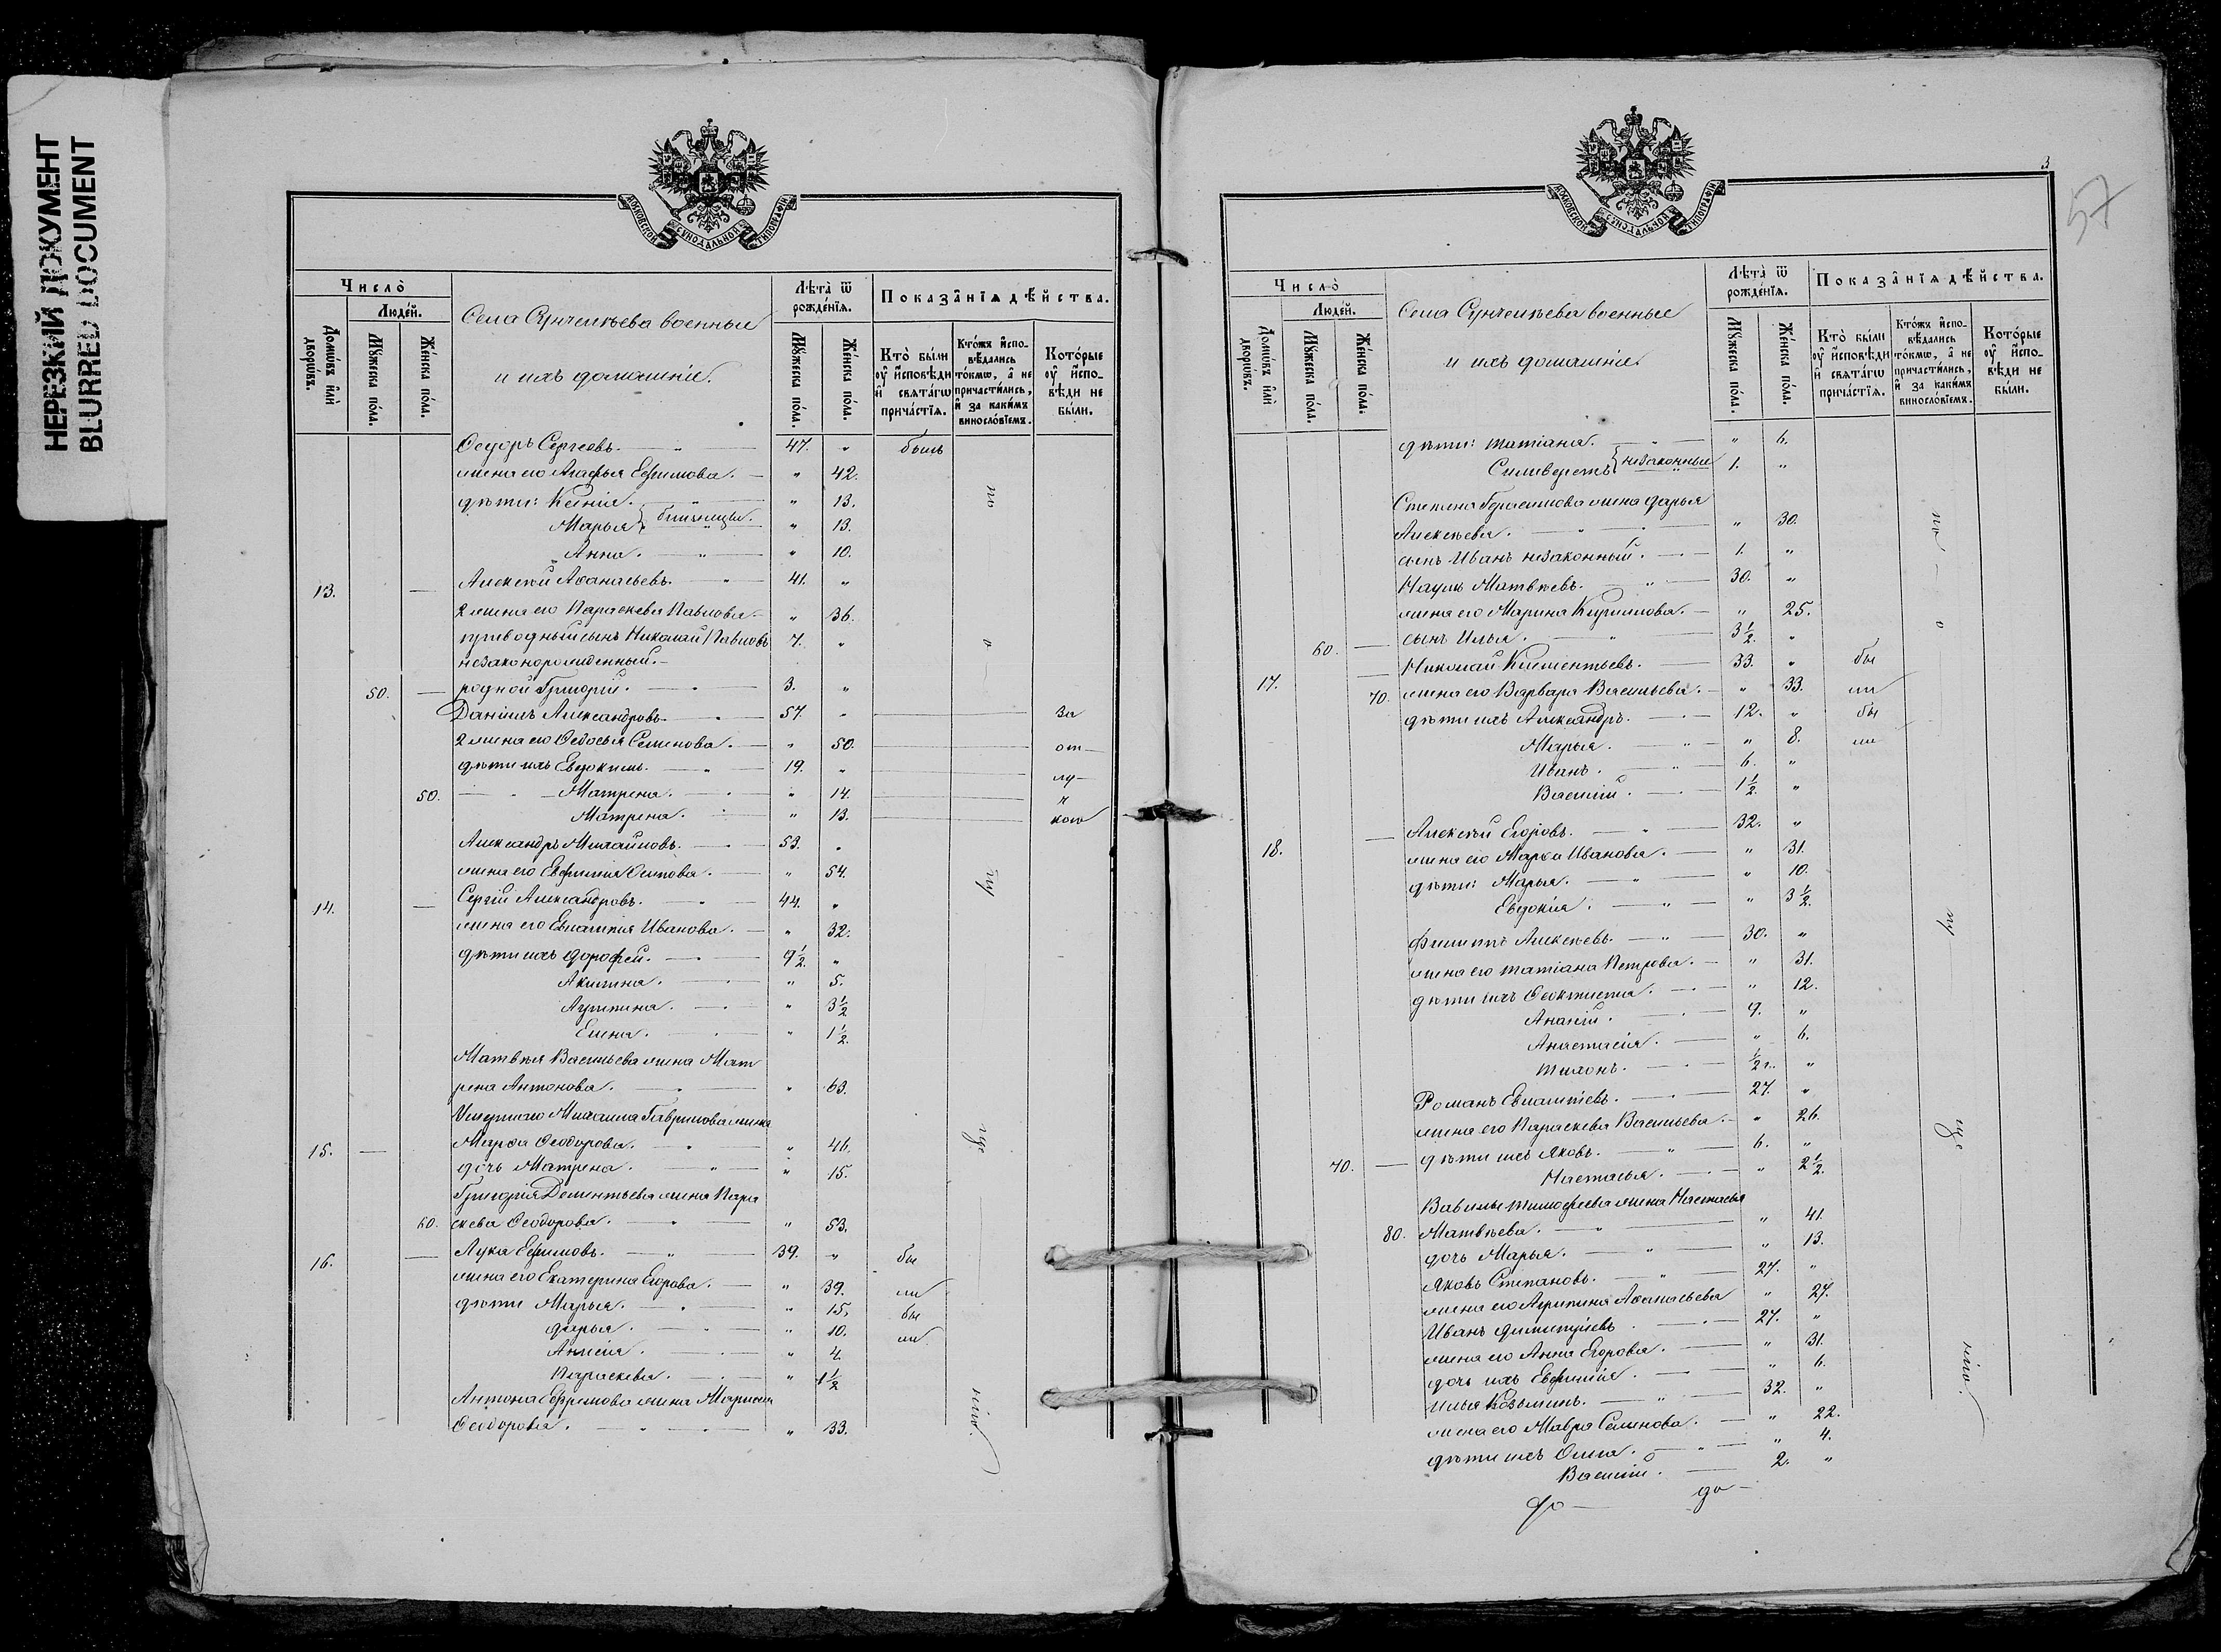 НЕРЕЗКИЙ ДОКУМЕНТ
BLURRED DOCUMENT
МОСКОВСКОЙ СѴНОДАЛЬНОЙ ТИПОГРАФІИ
Число̀
Людѐй.
Домѡ́въ и҆лѝ дворѡ́въ.
Мꙋ́жеска по́ла.
Же́нска по́ла.
Села Сунчелѣева военные
и ихъ домашніе.
Лѣта̀ ѿ рожде́нїѧ.
Мꙋ́жеска по́ла.
Же́нска по́ла.
Показа̂нїѧ дѣ́йства.
Кто̀ бы́ли ᲂу҆ и҆сповѣди и҆ свѧта́гѡ прича́стїѧ.
Кто́жъ и҆сповѣ́дались то́кмѡ, а҆ не причасти́лись, и҆ за каки́мъ винословїемъ.
Кото́рые ᲂу҆ и҆сповѣди не бы́ли.
Ѳедоръ Сергѣевъ. — 47. „ былъ
жена его Агафья Ефимова. — „ 42.
дѣти: Ксенія. „ 13. по
Марья близницы. „ 13.
Анна. — „ 10.
13. — Алексѣй Аѳанасьевъ. — 41. „
2 жена его Параскева Павлова — „ 36.
приводный сынъ Николай Павловъ 7. „ о
незаконорожденный. —
50. — родной Григорій. — 3. „
Даніилъ Александровъ. — 57. „ За
2 жена его Ѳедосья Семенова. — „ 50. от-
дѣти ихъ Евдокимъ. — 19. „ лу-
50. — Матрена. — „ 14. ч
Матрена. — „ 13. кою
Александръ Михайловъ. — 53. „
жена его Евфимія Осипова. — „ 54. пу
14. — Сергій Александровъ. — 44. „
жена его Евлампія Иванова. — „ 32.
дѣти ихъ Дорофей. — 9½. „
Акилина. — „ 5.
Агрипина. — „ 3½
Елена. — „ 1½.
Матвѣя Васильева жена Мат
рена Антонова. — „ 63.
Умершаго Михаила Гаврилова жена
15. — Марѳа Ѳеодорова. — „ 46. ще
дочь Матрена. — „ 15.
Григорія Дементьева жена Пара
60. скева Ѳеодорова. — „ 53.
16. — Лука Ефимовъ. — 39. „ бы
жена его Екатерина Егорова. — „ 39. ли
дѣти Марья. — „ 15. бы
Дарья. — „ 10. ли
Анисія. — „ 4.
Параскева. — „ 1½
Антона Ефремова жена Марѳа нію.
Ѳеодорова. — „ 33.
МОСКОВСКОЙ СѴНОДАЛЬНОЙ ТИПОГРАФІИ
3
57
Число̀
Людѐй.
Домѡ́въ и҆лѝ дворѡ́въ.
Мꙋ́жеска по́ла.
Же́нска по́ла.
Села Сунчелѣева военные
и ихъ домашніе.
Лѣта̀ ѿ рожде́нїѧ.
Мꙋ́жеска по́ла.
Же́нска по́ла.
Показа̂нїѧ дѣ́йства.
Кто̀ бы́ли ᲂу҆ и҆сповѣди и҆ свѧта́гѡ прича́стїѧ.
Кто́жъ и҆сповѣ́дались то́кмѡ, а҆ не причасти́лись, и҆ за каки́мъ винословїемъ.
Кото́рые ᲂу҆ и҆сповѣди не бы́ли.
дѣти: Татіана. — „ 6.
Силиверстъ незаконные 1. „
Степана Герасимова жена Дарья
Алексѣева. — „ 30. по
сынъ Иванъ незаконный. — 1. „
Наумъ Матвѣевъ. — 30. „
жена его Марина Кирилова. — „ 25.
60. — сынъ Илья. — 3½. „ о
17. — Николай Климентьевъ. — 33. „ бы
70. жена его Варвара Васильева. — „ 33. ли
дѣти ихъ Александръ. — 12. „ бы
Марья. — „ 8. ли
Иванъ. — 6. „
Василій. — 1½. „
18. — Алексѣй Егоровъ. — 32. „
жена его Марѳа Иванова. — „ 31.
дѣти: Марья. — „ 10.
Евдокія. — „ 3½.
Филиппъ Алексѣевъ. — 30. „ пу
жена его Татіана Петрова. — „ 31.
дѣти ихъ Ѳеоктиста. — „ 12.
Ананій. — 9. „
Анастасія. — „ 6.
Тихонъ. — ½ г. „
Романъ Евлампіевъ. — 27. „
жена его Параскева Васильева. — „ 26. ще
70. — дѣти ихъ Яковъ. — 6. „
Настасья. — „ 2½.
Вавилы Тимофеева жена Настасья
80. Матвѣева. — „ 41.
дочь Марья. — „ 13.
Яковъ Степановъ. — 27. „
жена его Агрипина Аѳанасьева „ 27.
Иванъ Димитріевъ. — 27. „
жена его Анна Егорова. — „ 31. нію.
дочь ихъ Евфимія. — „ 6.
Илья Козьминъ. — 32. „
жена его Мавра Семенова. — „ 22.
дѣти ихъ Ольга. — „ 4.
Василій. — 2. „